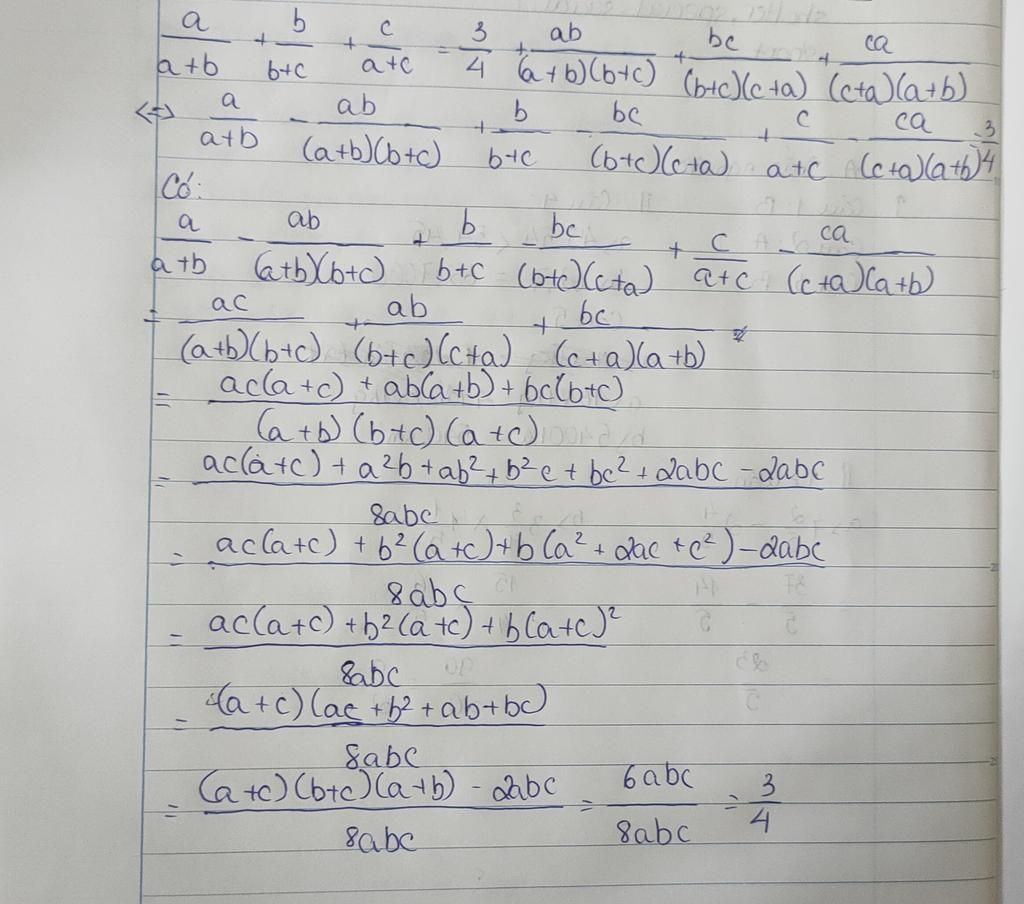 a/(a+b) + b/(b+c) + c/(a+c) = 3/4 + ab/((a+b)(b+c)) + bc/((b+c)(c+a)) + ca/((c+a)(a+b))
<=> a/(a+b) - ab/((a+b)(b+c)) + b/(b+c) - bc/((b+c)(c+a)) + c/(a+c) - ca/((c+a)(a+b)) = 3/4
Có:
a/(a+b) - ab/((a+b)(b+c)) + b/(b+c) - bc/((b+c)(c+a)) + c/(a+c) - ca/((c+a)(a+b))
= ac/((a+b)(b+c)) + ab/((b+c)(c+a)) + bc/((c+a)(a+b))
= (ac(a+c) + ab(a+b) + bc(b+c))/((a+b)(b+c)(a+c))
= (ac(a+c) + a²b + ab² + b²c + bc² + 2abc - 2abc)/(8abc)
= (ac(a+c) + b²(a+c) + b(a² + 2ac + c²) - 2abc)/(8abc)
= (ac(a+c) + b²(a+c) + b(a+c)²)/(8abc)
= ((a+c)(ac + b² + ab + bc))/(8abc)
= ((a+c)(b+c)(a+b) - 2abc)/(8abc) = 6abc/(8abc) = 3/4